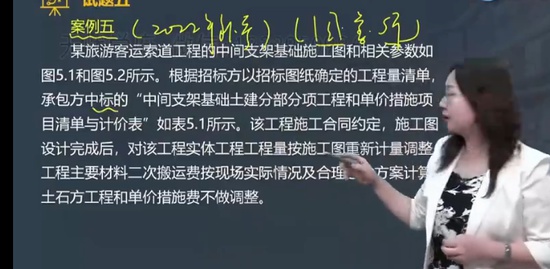 试题五
案例五（2022年补考）（
某旅游客运索道工程的中间支架基础施工图和相关参数如
图5.1和图5.2所示。根据招标方以招标图纸确定的工程量清单，
承包方中标的“中间支架基础土建分部分项工程和单价措施项
目清单与计价表”如表5.1所示。该工程施工合同约定，施工图
设计完成后，对该工程实体工程工程量按施工图重新计量调整，
工程主要材料二次搬运费按现场实际情况及合理 方案计算，
土石方工程和单价措施费不做调整。